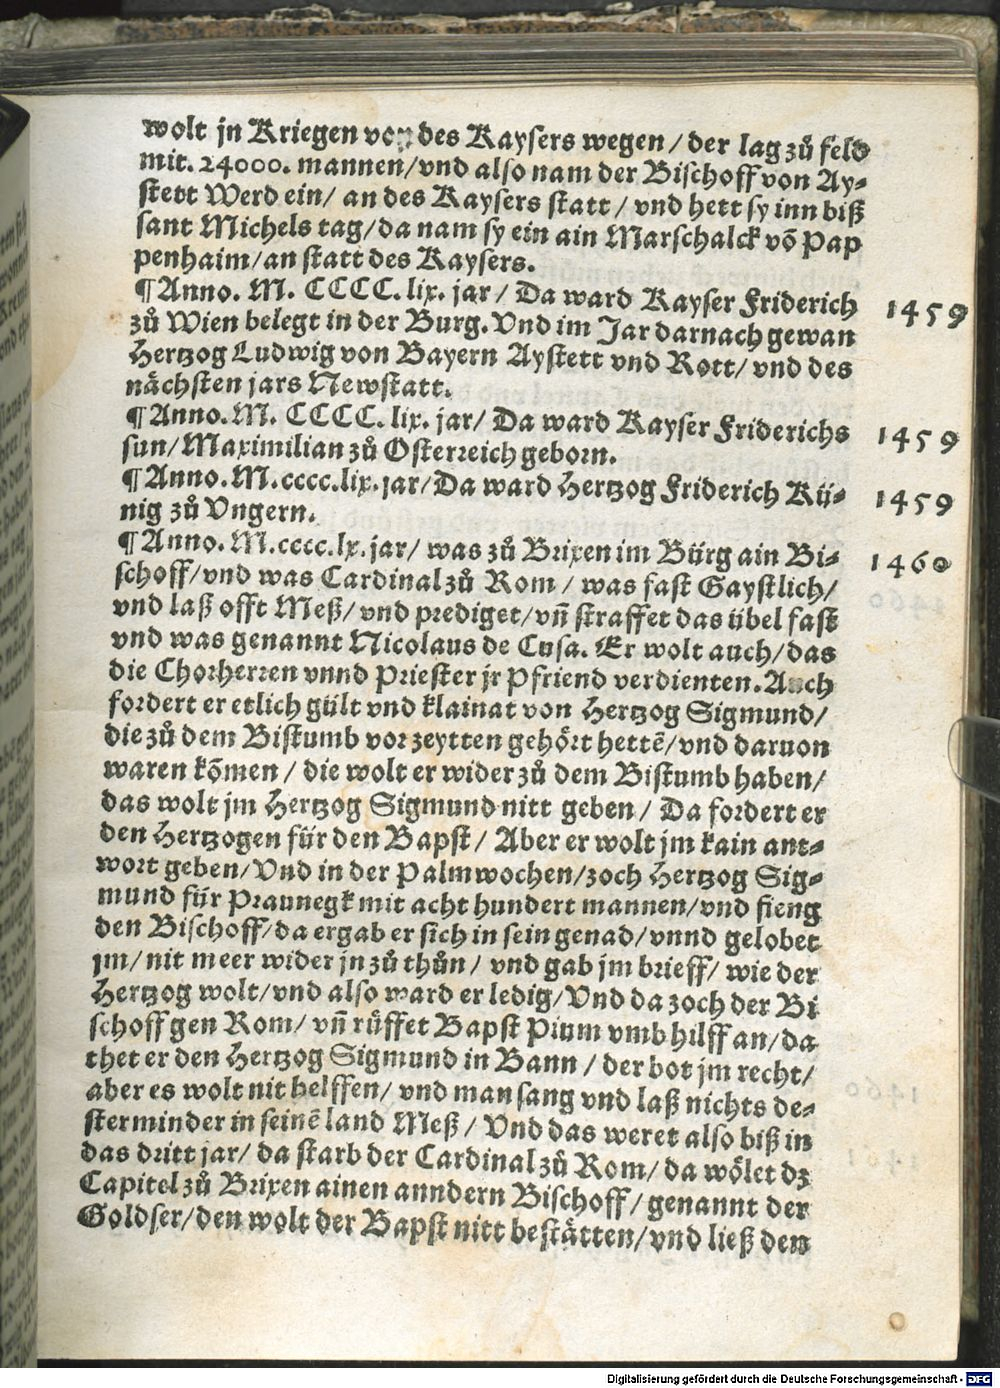 wolt jn Kriegen von des Kaysers wegen / der lag zů feld
mit. 24000. mannen/vnd also nam der Bischoff von Ay⸗
stett Werd ein/ an des Kaysers statt / vnd hett sy inn biß
sant Michels tag/da nam sy ein ain Marschalck võ Pap
penhaim/an statt des Kaysers.
¶Anno. M. CCCC. lix. jar / Da ward Kayser Friderich 1459
zů Wien belegt in der Burg. Vnd im Jar darnach gewan
Hertzog Ludwig von Bayern Aystett vnd Rott/ vnd des
nächsten jars Newstatt.
¶Anno. M. CCCC. lix. jar/ Da ward Kayser Friderichs 1459
sun/Maximilian zů Osterreich geborn.
¶Anno. M.cccc.lix.jar/Da ward Hertzog Friderich Kü⸗ 1459
nig zů Vngern.
¶Anno. M.cccc.lx.jar/ was zů Brixen im Bürg ain Bi⸗ 1460
schoff/vnd was Cardinal zů Rom / was fast Gaystlich/
vnd laß offt Meß/ vnd prediget/vñ straffet das übel fast
vnd was genannt Nicolaus de Cusa. Er wolt auch/das
die Chorherren vnnd Priester jr Pfriend verdienten. Auch
fordert er etlich gült vnd klainat von Hertzog Sigmund/
die zů dem Bistumb vor zeytten gehört hettē/vnd daruon
waren kõmen / die wolt er wider zů dem Bistumb haben/
das wolt jm Hertzog Sigmund nitt geben / Da fordert er
den Hertzogen für den Bapst/ Aber er wolt jm kain ant⸗
wort geben/Vnd in der Palmwochen/zoch Hertzog Sig⸗
mund für Praunegk mit acht hundert mannen/vnd fieng
den Bischoff/da ergab er sich in sein genad/vnnd gelobet
jm/nit meer wider jn zů thůn / vnd gab jm brieff/ wie der
Hertzog wolt/vnd also ward er ledig/Vnd da zoch der Bi
schoff gen Rom/ vñ rüffet Bapst Pium vmb hilff an/da
thet er den Hertzog Sigmund in Bann / der bot jm recht/
aber es wolt nit helffen/ vnd man sang vnd laß nichts de⸗
sterminder in seinē land Meß / Vnd das weret also biß in
das dritt jar/ da starb der Cardinal zů Rom/ da wölet dz
Capitel zů Brixen ainen anndern Bischoff/ genannt der
Goldser/den wolt der Bapst nitt bestätten/vnd ließ den
Digitalisierung gefördert durch die Deutsche Forschungsgemeinschaft - DFG